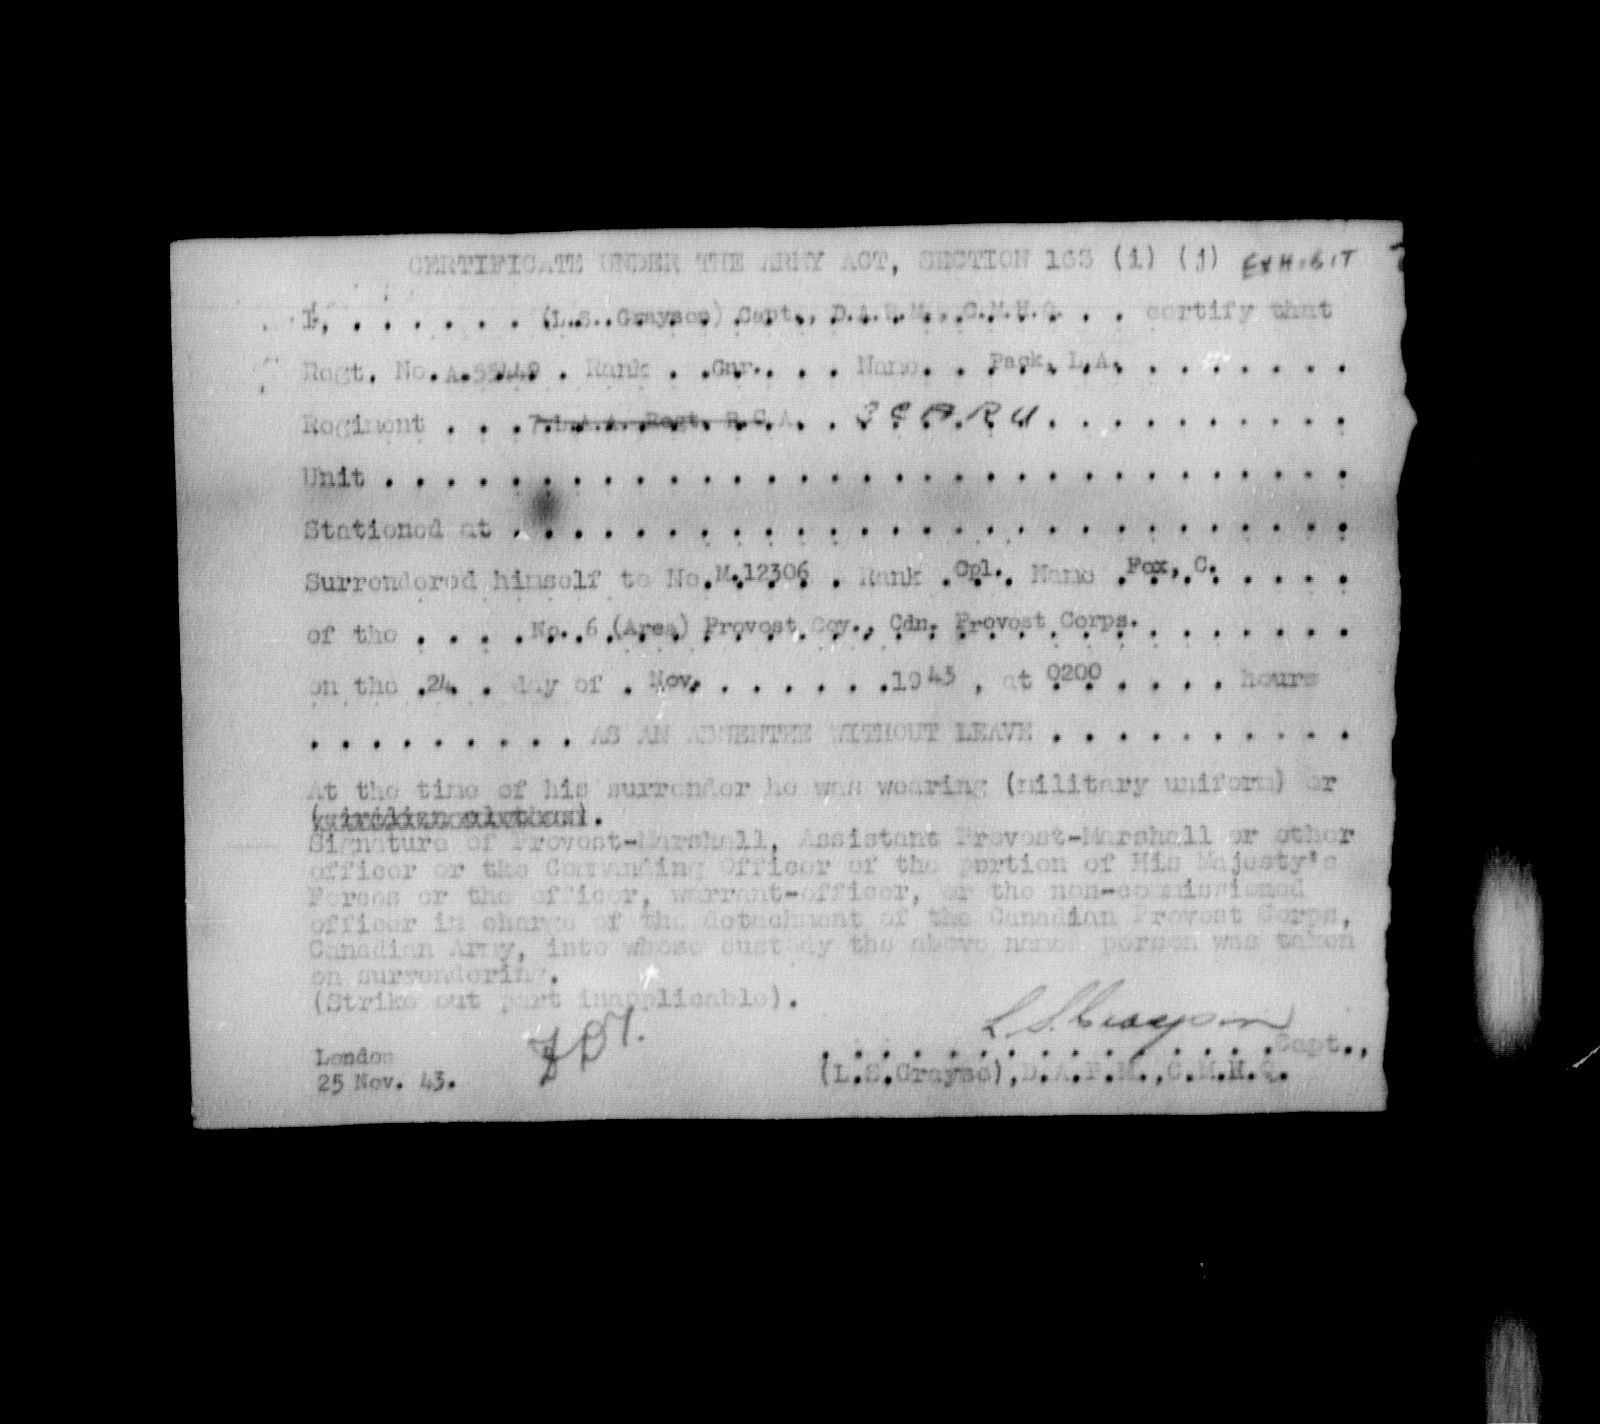 CERTIFICATE UNDER THE ARMY ACT, SECTION 163 (i) (j) EXHIBIT
I, . . . . . . . (L.S. Grayson) Capt., D.A.P.M., C.M.H.Q. . . certify that
Regt. No. A.55449 . Rank . . Gnr. . . . Name . . Pack, L.A. . . . . . . .
Regiment . . . 7 L.A.A. Regt. R.C.A. . 3 C A R U . . . . . . . . . .
Unit . . . . . . . . . . . . . . . . . . . . . . . . . . . . . . .
Stationed at . . . . . . . . . . . . . . . . . . . . . . . . . . .
Surrendered himself to No. M.12306 . Rank . Cpl. . Name . Fox, C. . . . .
of the . . . . No. 6 (Area) Provost Coy., Cdn. Provost Corps. . . . . . .
on the . 24 . day of . Nov. . . . . . . 1943 , at 0200 . . . . hours
. . . . . . . . . AS AN ABSENTEE WITHOUT LEAVE . . . . . . . . . .
At the time of his surrender he was wearing (military uniform) or
(civilian clothes).
Signature of Provost-Marshall, Assistant Provost-Marshall or other
officer or the Commanding Officer of the portion of His Majesty's
Forces or the officer, warrant-officer, or the non-commissioned
officer in charge of the detachment of the Canadian Provost Corps,
Canadian Army, into whose custody the above named person was taken
on surrendering.
(Strike out part inapplicable).
L S Grayson
London
. . . . . . . . . . . . . . . Capt.,
25 Nov. 43.
(L.S.Grayso), D.A.P.M., C.M.H.Q.